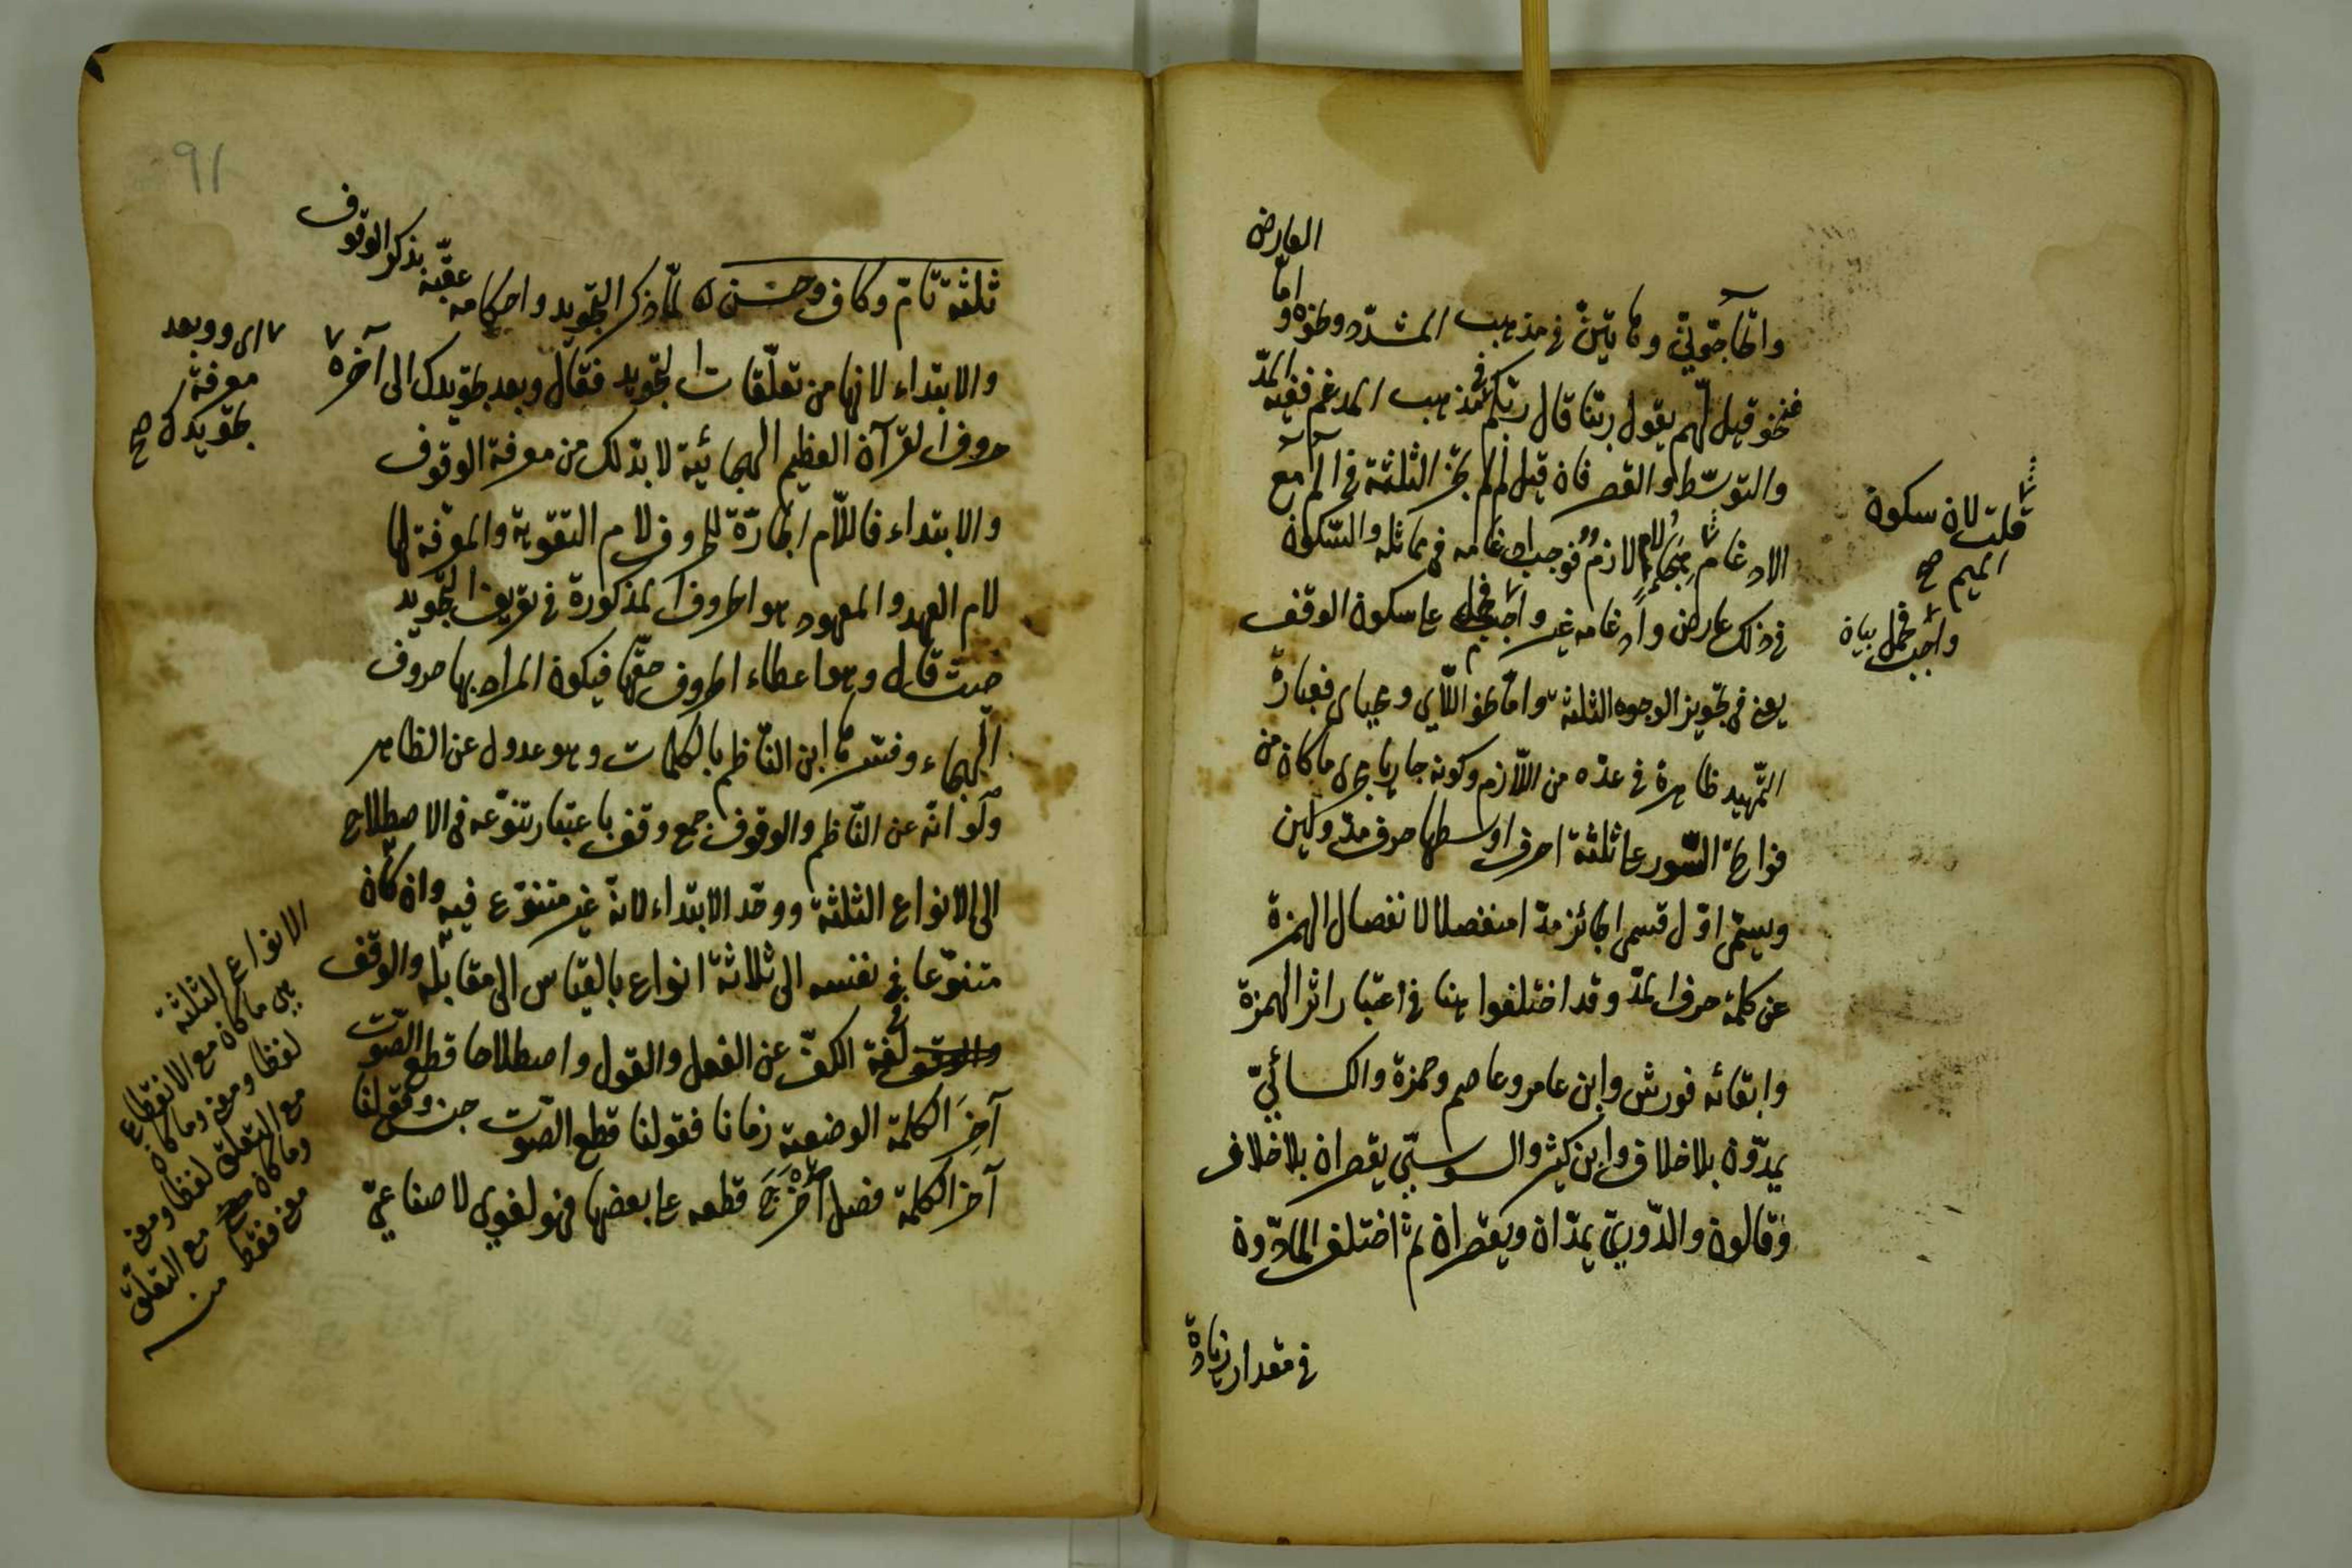 العارض
واتحاجوني وتأتين في مذهب المشدد ونحوه واما
فنحو قيل لهم يقول ربنا قال ربكم في مذهب المدغم ففيه المد
والتوسط والقصر فان قيل لم لم تجز الثلثة في الم مع
الادغام لازم فوجب ادغامه في مماثله والسكون
في ذلك عارض وادغامه غير واجب فحمل على سكون الوقف
يعني في تجويز الوجوه الثلثة واما نحو اللآي ومحياي فعبارة
التمهيد ظاهرة في عده من اللازم وكونه جاريا مجرى ما كان من
فواتح السور على ثلثة احرف اوسطها حرف مد ولين
ويسمى اول قسمي الجائز مدا منفصلا لانفصال الهمزة
عن كلمة حرف المد وقد اختلفوا هنا في اعتبار اثر الهمزة
وابقائه فورش وابن عامر وعاصم وحمزة والكسائي
يمدون بلا خلاف وابن كثير والسوسي يقصران بلا خلاف
وقالون والدوري يمدان ويقصران ثم اختلف المادون
في مقدار زيادة
قلت لان سكون
الميم صح
واجب فحمل بيان
91
ثلثة تام وكاف وحسن لما ذكر التجويد واحكامه عقبه بذكر الوقوف
والابتداء لانها من تعلقات التجويد فقال وبعد تجويدك الى آخره
حروف القرآن العظيم الهجائية لا بد لك من معرفة الوقوف
والابتداء فاللام الجارة للحروف لام التقوية والمعرفة لها
لام العهد والمعهود هو الحروف المذكورة في تعريف التجويد
حيث قال وهو اعطاء الحروف حقها فيكون المراد بها حروف
الهجاء وفسرها ابن الناظم بالكلمات وهو عدول عن الظاهر
ولو انه عن الناظم والوقوف جمع وقف باعتبار تنوعه في الاصطلاح
الى الانواع الثلثة ووحد الابتداء لانه غير متنوع فيه وان كان
متنوعا في نفسه الى ثلاثة انواع بالقياس الى مقابله والوقف
في لغة الكف عن الفعل والقول واصطلاحا قطع الصوت
آخر الكلمة الوضعية زمانا فقولنا قطع الصوت جنس وقولنا
آخر الكلمة فصل اخرج قطعه على بعضها فهو لغوي لا صناعي
اي وبعد
معرفة
تجويدك صح
الانواع الثلثة
هي ما كان مع الانقطاع
لفظا ومعنى وما كان
مع التعلق لفظا ومعنى
وما كان مع التعلق
معنى فقط منه